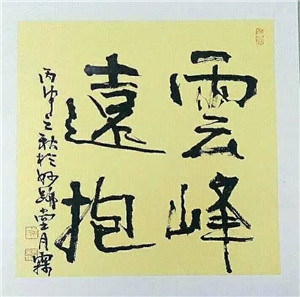 雲峰
遠抱
丙申之秋於妙蹟堂月霖